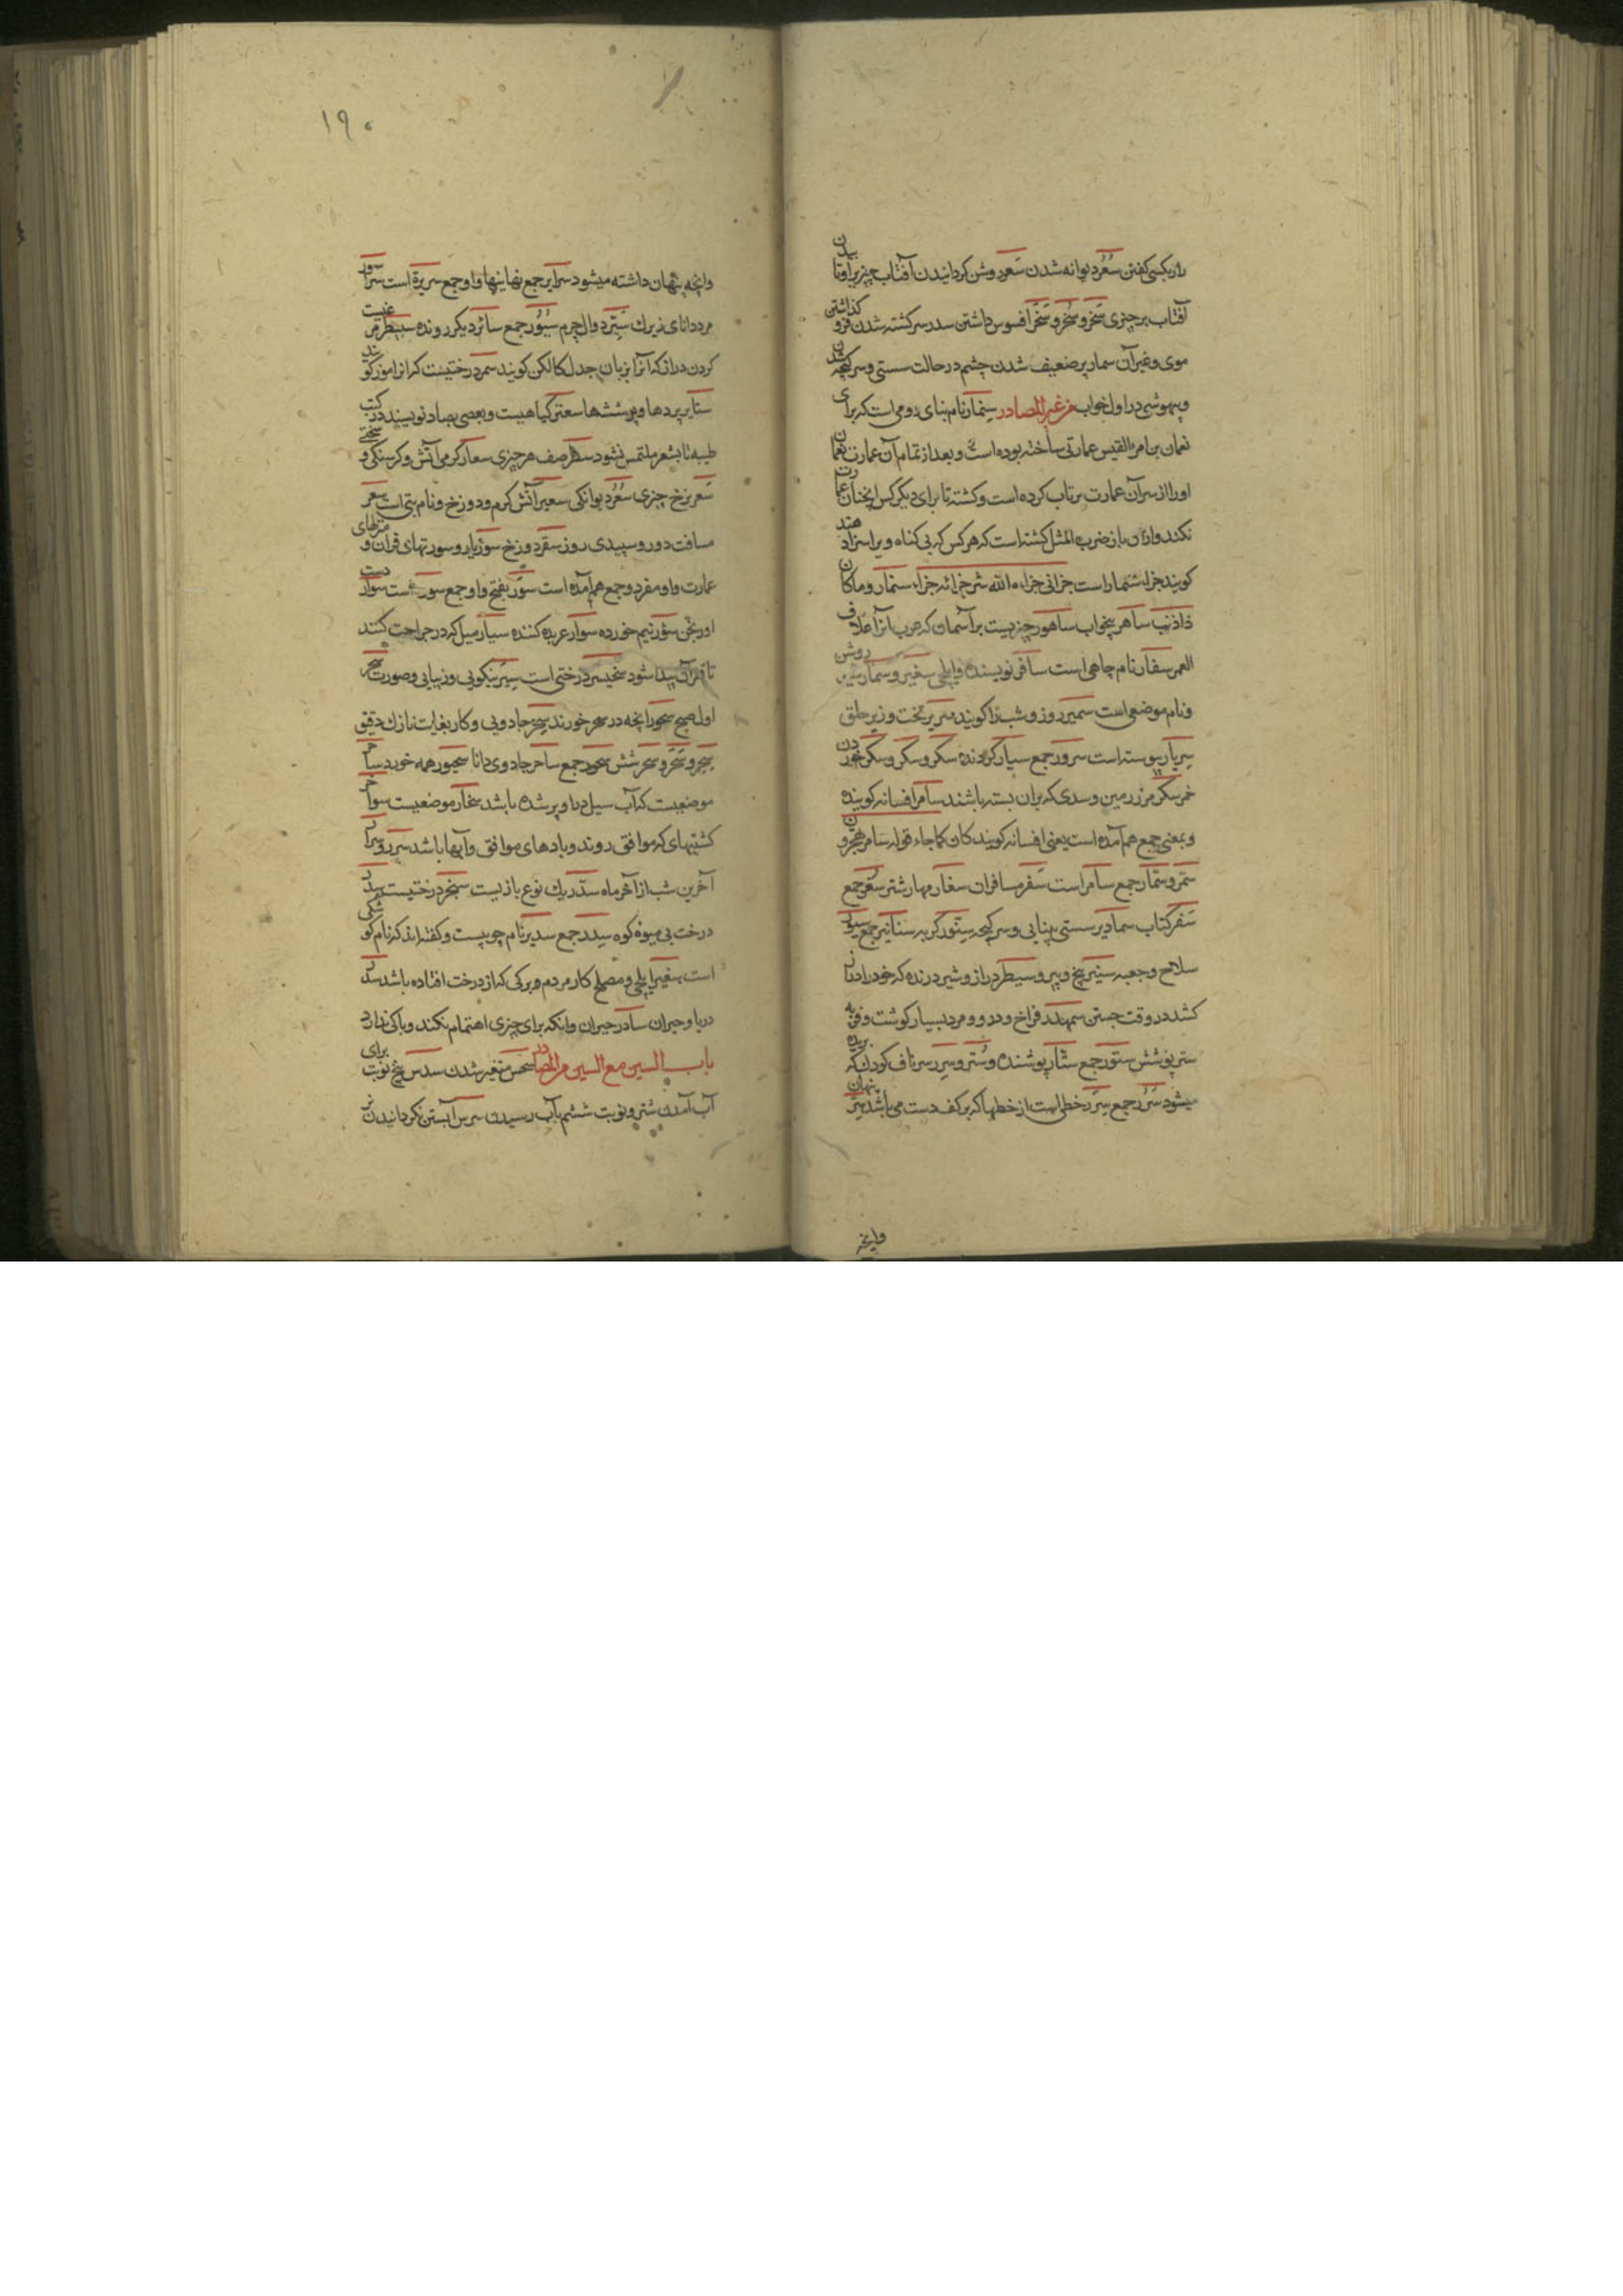 راز بکسی کفتن سُعُر دیوانه شدن سَعر روشن کردانیدن آفتاب چیزیرا و تابیدن
آفتاب بر چیزی سَخَر و سُخر و سَخَر افسوس داشتن سدر سرکشته شدن و فرو کذاشتن
موی و غیر آن سمادیر ضعیف شدن چشم در حالت سستی و سرکیجه شدن
و بیهوشی در اول خواب من غیر المصادر سِنِمّار نام بنای رومی است که برای
نعمان بن امرء القیس عمارتی ساخته بوده است و بعد از تمام آن عمارت نعمان
اورا از سر آن عمارت پرتاب کرده است و کشته تا برای دیکر کس اینچنان عمارت
نکند و از آن باز ضرب المثل کشته است که هر کس که بی کناه ویرا سزا دهند
کویند جزاء سنمار است جزانی جزاه الله شر جزائه جزاء سنمار و ما کان
ذا ذنب ساهر بیخواب ساهور چیزیست بر آسمان که عرب آنرا غلاف
القمر سفار نام چاهی است سافر نویسنده و ایلچی سفیر و سمار شیر روشن
و نام موضعی است سمیر روز و شب را کویند سریر تخت و زیر حلق
سِربار پیوسته است سرور جمع سیار کردنده سکر و سکر و سکر خوردن
خمر سکر مرز زمین و سدی که بران بسته باشند سامر افسانه کوینده
و بمعنی جمع هم آمده است یعنی افسانه کویندکان کما جاء قوله سامرا تهجرون
سمّر و سمّار جمع سامر است سَفر مسافران سفار مهار شتر سُفُر جمع
سَفر کتاب سمادیر سستی بینایی و سرکیجه سِنّور کربه سنانیر جمع سنور
سلاح و جعبه سنیر یخ و پیر و سیطر دراز و شیر درنده که خود را دراز
کشد در وقت جستن سمهدر فراخ و دور و مرد بسیار کوشت و فربه
ستر پوشش ستور جمع ستّار پوشنده و سُتر و سِرر سر ناف کودک که بریده
میشود سُرُر جمع سِرَر خطی است از خطها که بر کف دست می باشد سِرّ پنهان
وانچه
۱۹۰
وانچه پنهان داشته میشود سرایر جمع نهانیها و او جمع سریرة است سراسور
مرد دانای زیرک سَیر دوال چرم سُیُور جمع سائر دیکر رونده سبیطر مرغیست
کردن دراز که آنرا بزبان جدل کالکن کویند سمر درختیست که از امور کویند
ستایر پردها و پوششها سعتر کیاهیست و بعضی بصاد نویسند در کتب
طبیه تا بشعر ملتبس نشود سطر صف هر چیزی سعار کرمی آتش و کرسنکی و سختی
سَعر نرخ چیزی سُعُر دیوانکی سعیر آتش کرم و دوزخ و نام بتی است سفر
مسافت دور و سپیدی روز سقر دوزخ سور بارو و سورتهای قران و منزلهای
عمارت و او مفرد و جمع هم آمده است سوَر بفتح واو جمع سور است سوار دست
اورنجن سؤر نیم خورده سوار عربده کننده سیار میل که در جراحت کنند
تا قعر آن پیدا شود سخیسر درختی است سِبر نیکویی و زیبایی و صورت سحر
اول صبح سحور آنچه در سحر خورند سِحر جادویی و کار بغایت نازک دقیق
سِحر و سَحَر و سُحر شش سحور جمع ساحر جادوی دانا سحور همه خورد ساجر
موضعیست که آب سیل دراو پر شده باشد سخار موضعیست سواخر
کشتیهای که موافق روند و بادهای موافق و آبها باشد سرر و سرار
آخرین شب از آخر ماه سدّر یک نوع بازیست سخبر درختیست سدر
درخت بی میوه کوه سِدَر جمع سدیر نام جوییست و کفته اند که نام کوشکی
است سفیر ایلچی و مصلح کار مردم و برکی که از درخت افتاده باشد سدر
دریا و حیران سادر حیران و انکه برای چیزی اهتمام نکند و باکی ندارد
باب السین مع السین من المصادر سجس متغیر شدن سدس پنج نوبت برای
آب آمدن شتر و نوبت ششم بآب رسیدن سرس آبستن نکردانیدن نر